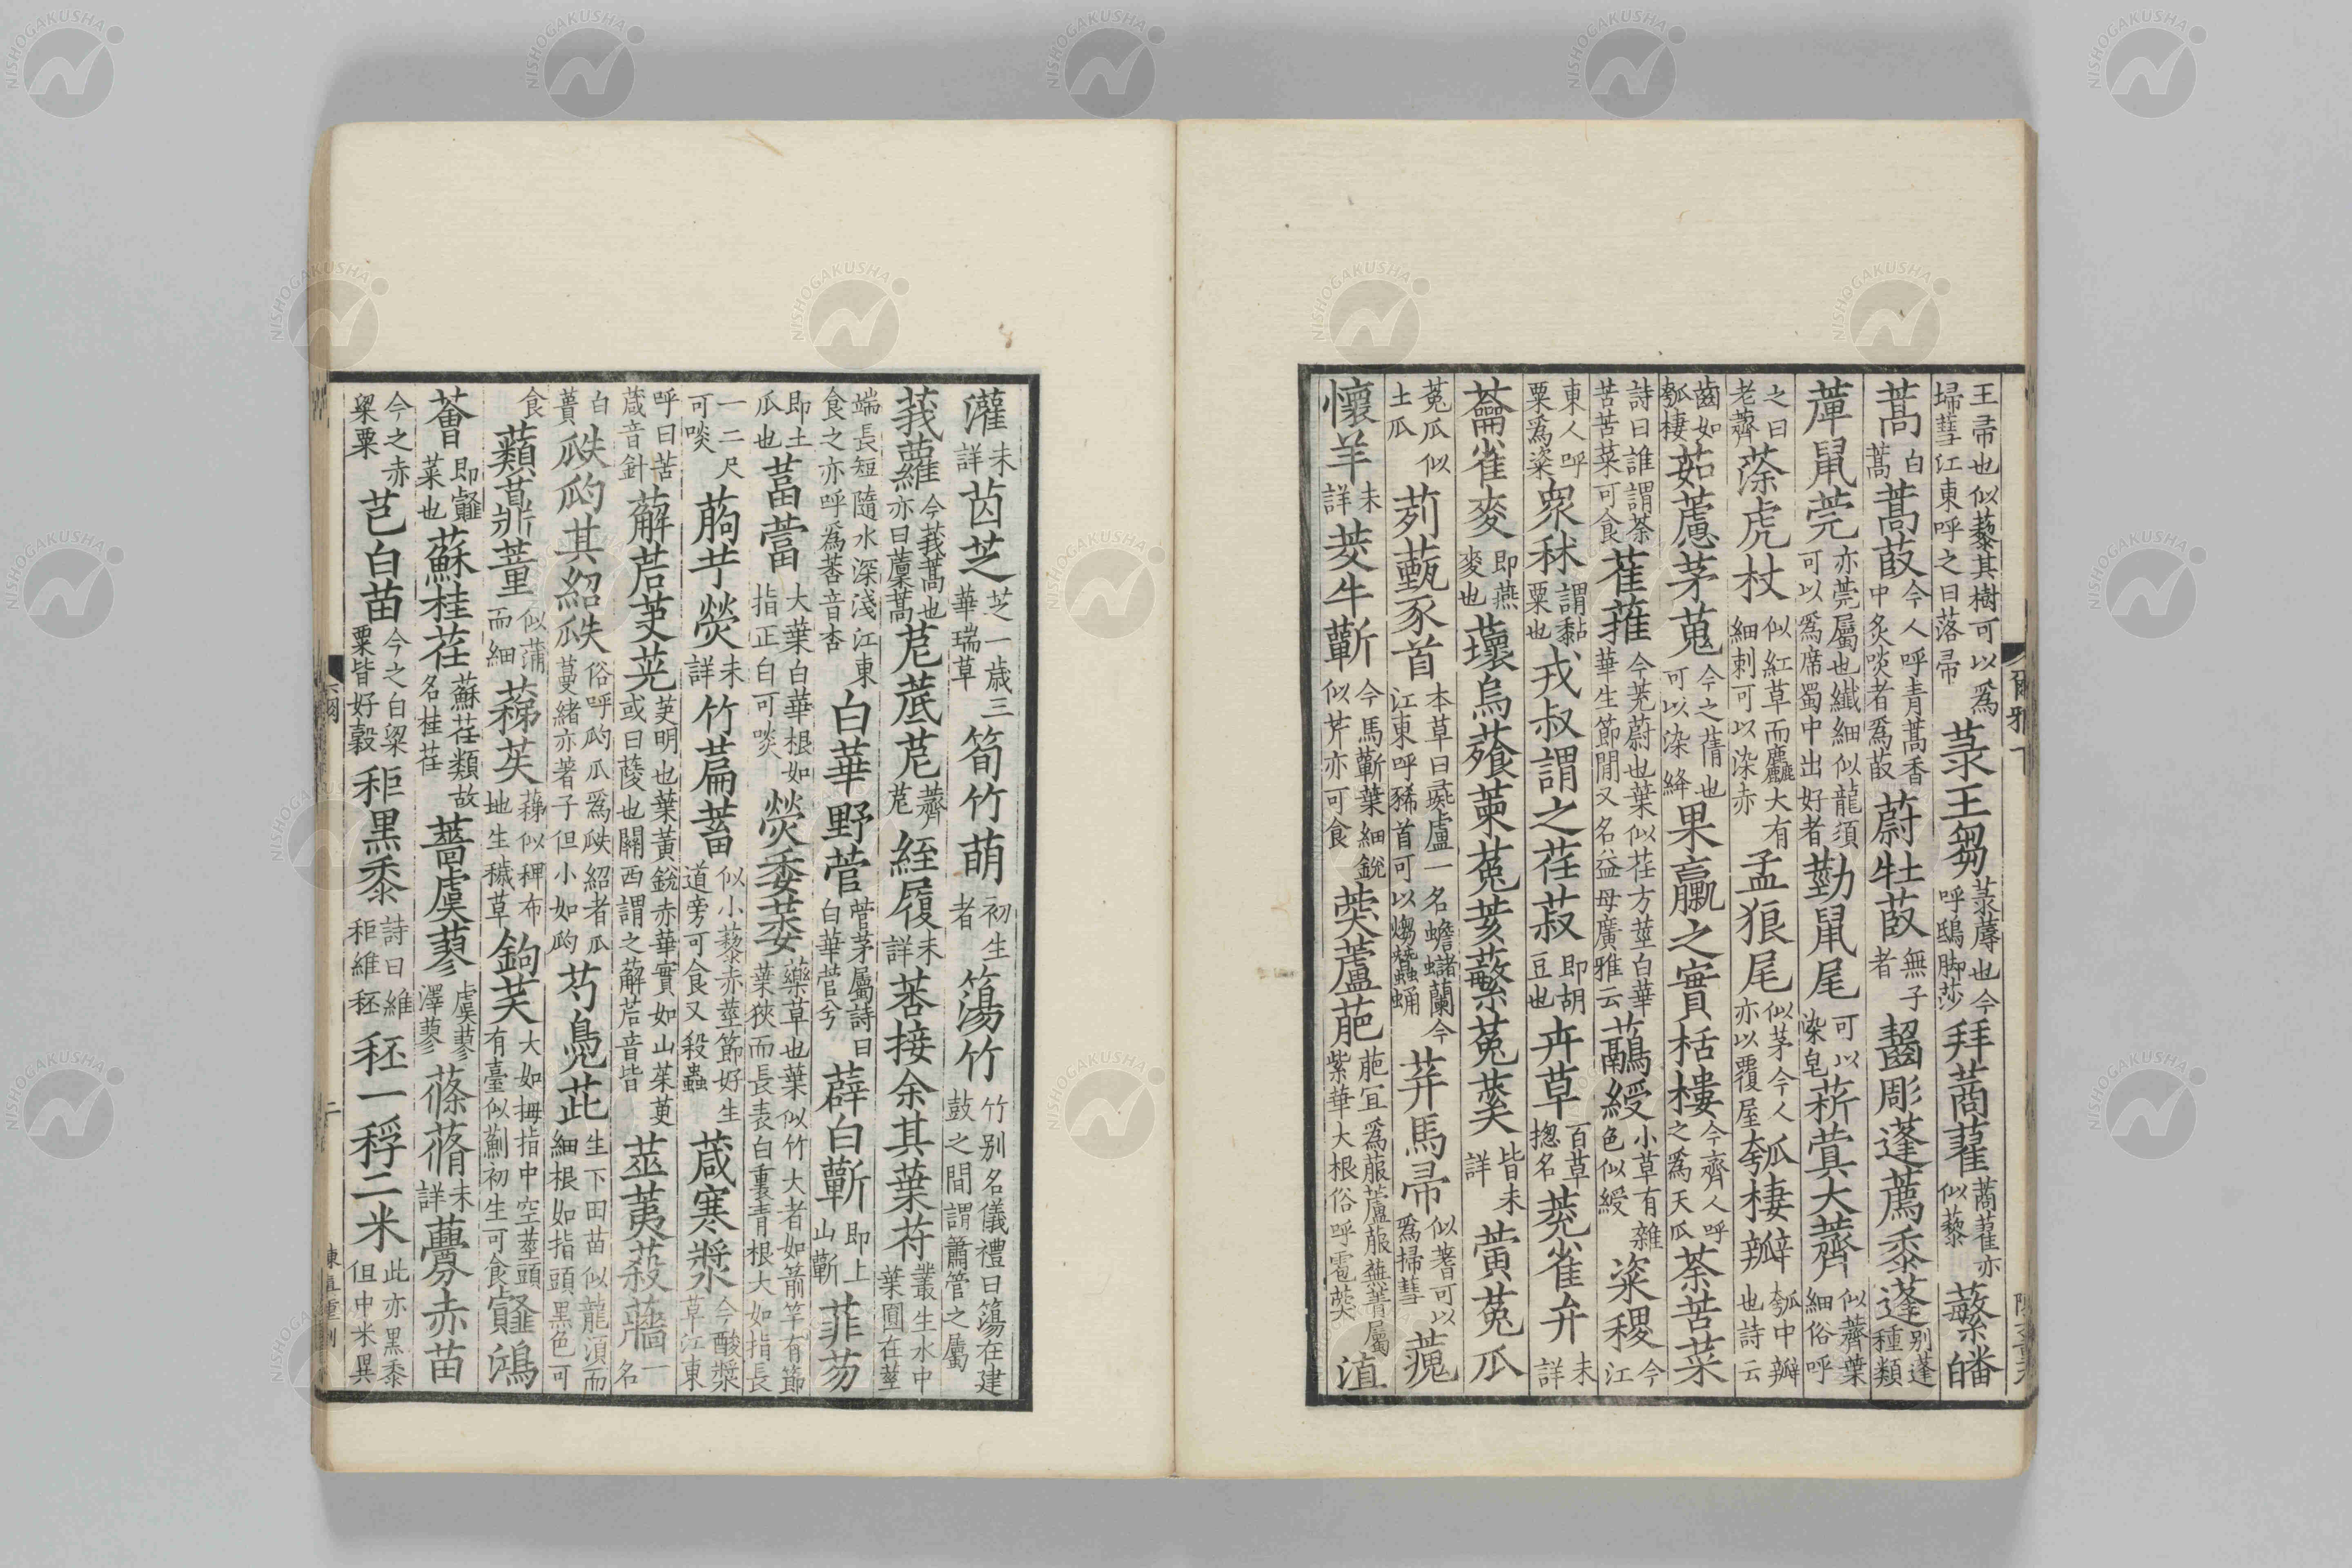 王帚也似藜其樹可以爲埽彗江東呼之曰落帚菉王芻菉蓐也今呼鴟脚莎拜蔏藋蔏藋亦似藜蘩皤
蒿白蒿蒿菣今人呼青蒿香中炙啖者爲菣蔚牡菣無子者齧彫蓬薦黍蓬别蓬種類
萆鼠莞亦莞屬也纖細似龍須可以爲席蜀中出好者葝鼠尾可以染皂菥蓂大薺似薺葉細俗呼
之曰老薺蒤虎杖似紅草而麤大有細刺可以染赤孟狼尾似茅今人亦以覆屋瓠棲瓣瓠中瓣也詩云
齒如瓠棲茹藘茅蒐今之蒨也可以染絳果臝之實栝樓今齊人呼之爲天瓜荼苦菜
詩曰誰謂荼苦苦菜可食萑蓷今茺蔚也葉似荏方莖白華華生節間又名益母廣雅云虉綬小草有雜色似綬粢稷今江
東人呼粟爲粢衆秫謂黏粟也戎叔謂之荏菽即胡豆也卉草百草揔名蒬雀弁未詳
蘥雀麥即燕麥也蘾烏蕵萰菟荄蘩菟蒵皆未詳黃菟瓜
菟瓜似土瓜茢薽豕首本草曰彘盧一名蟾蠩蘭今江東呼豨首可以煼蠶蛹荓馬帚似蓍可以爲掃彗藱
懷羊未詳茭牛蘄今馬蘄葉細銳似芹亦可食葖蘆萉萉宜爲菔蘆菔蕪菁屬紫華大根俗呼雹葖淔
灌未詳苬芝芝一歲三華瑞草筍竹萌初生者簜竹竹别名儀禮曰簜在建鼓之間謂簫管之屬
莪蘿今莪蒿也亦曰䕲蒿苨菧苨薺苨絰履未詳莕接余其葉苻叢生水中葉圓在莖
端長短隨水深淺江東食之亦呼爲莕音杏白華野菅菅茅屬詩曰白華菅兮薜白蘄即上山蘄菲芴
即土瓜也葍䔰大葉白華根如指正白可啖熒委萎藥草也葉似竹大者如箭竿有節葉狹而長表白裏青根大如指長
一二尺可啖葋艼熒未詳竹萹蓄似小藜赤莖節好生道旁可食又殺蟲葴寒漿今酸漿草江東
呼曰苦葴音針薢茩芵茪芵明也葉黃銳赤華實如山茱萸或曰蔆也關西謂之薢茩音皆莁荑蔱蘠一名
白蕢瓞瓝其紹瓞俗呼瓝瓜爲瓞紹者瓜蔓緒亦著子但小如瓝芍鳧茈生下田苗似龍須而細根如指頭黑色可
食蘱薡蕫似蒲而細蕛苵蕛似稗布地生穢草鉤芺大如拇指中空莖頭有臺似薊初生可食䪥鴻
薈即䪥菜也蘇桂荏蘇荏類故名桂荏薔虞蓼虞蓼澤蓼蓨蓨未詳虋赤苗
今之赤粱粟芑白苗今之白粱粟皆好穀秬黑黍詩曰維秬維秠秠一稃二米此亦黑黍但中米異